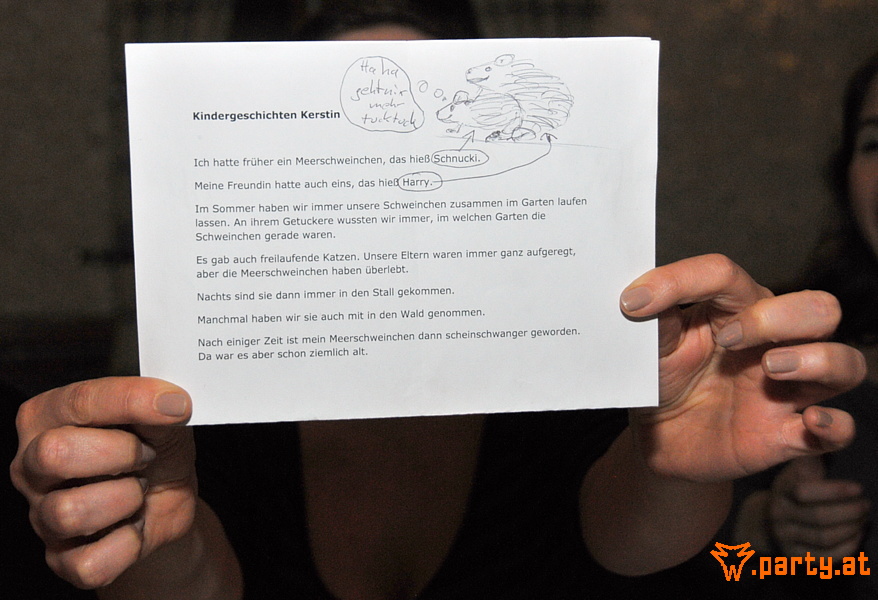 Ha ha
geht nix
mehr
tucktuck
Kindergeschichten Kerstin
Ich hatte früher ein Meerschweinchen, das hieß Schnucki.
Meine Freundin hatte auch eins, das hieß Harry.
Im Sommer haben wir immer unsere Schweinchen zusammen im Garten laufen
lassen. An ihrem Getuckere wussten wir immer, im welchen Garten die
Schweinchen gerade waren.
Es gab auch freilaufende Katzen. Unsere Eltern waren immer ganz aufgeregt,
aber die Meerschweinchen haben überlebt.
Nachts sind sie dann immer in den Stall gekommen.
Manchmal haben wir sie auch mit in den Wald genommen.
Nach einiger Zeit ist mein Meerschweinchen dann scheinschwanger geworden.
Da war es aber schon ziemlich alt.
w.party.at